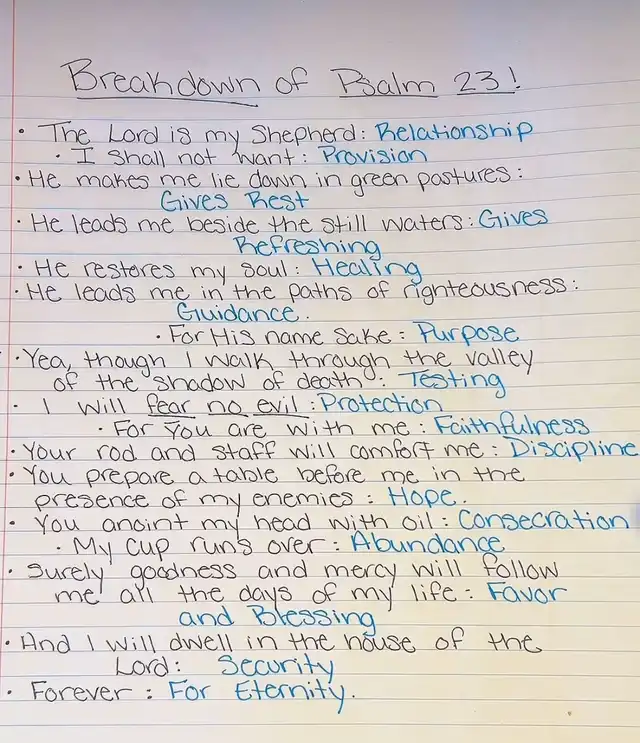 Breakdown of Psalm 23!
• The Lord is my Shepherd: Relationship
• I shall not want: Provision
• He makes me lie down in green pastures:
Gives Rest
• He leads me beside the still waters: Gives
Refreshing
• He restores my soul: Healing
• He leads me in the paths of righteousness:
Guidance.
• For His name sake: Purpose
• Yea, though I walk through the valley
of the shadow of death: Testing
• I will fear no evil: Protection
• For You are with me: Faithfulness
• Your rod and staff will comfort me: Discipline
• You prepare a table before me in the
presence of my enemies: Hope.
• You anoint my head with oil: Consecration
• My cup runs over: Abundance
• Surely goodness and mercy will follow
me all the days of my life: Favor
and Blessing
• And I will dwell in the house of the
Lord: Security
• Forever: For Eternity.